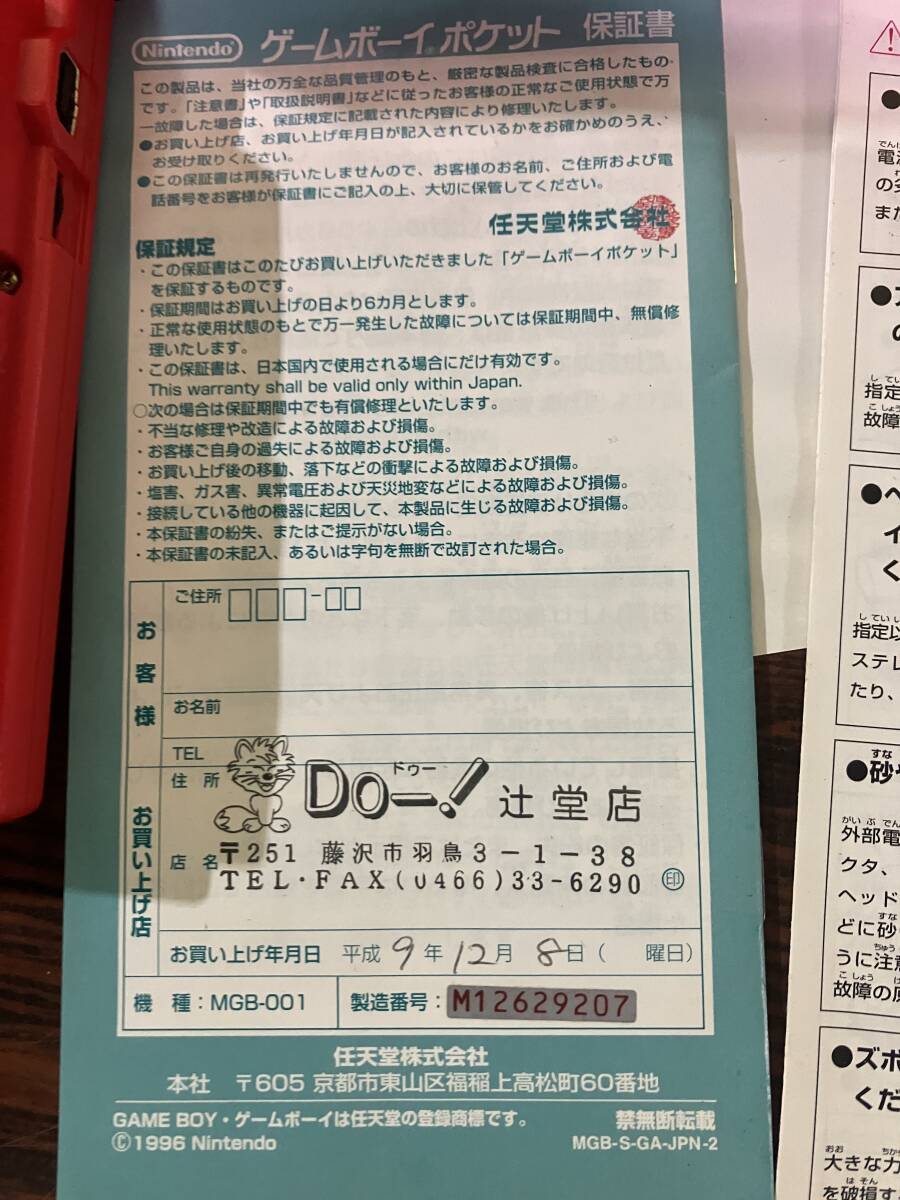 Nintendo ゲームボーイポケット 保証書
この製品は、当社の万全な品質管理のもと、厳密な製品検査に合格したもの
です。「注意書」や「取扱説明書」などに従ったお客様の正常なご使用状態で万
一故障した場合は、保証規定に記載された内容により修理いたします。
●お買い上げ店、お買い上げ年月日が記入されているかをお確かめのうえ、
お受け取りください。
●この保証書は再発行いたしませんので、お客様のお名前、ご住所および電
話番号をお客様が保証書にご記入の上、大切に保管してください。
任天堂株式会社
保証規定
・この保証書はこのたびお買い上げいただきました「ゲームボーイポケット」
を保証するものです。
・保証期間はお買い上げの日より6カ月とします。
・正常な使用状態のもとで万一発生した故障については保証期間中、無償修
理いたします。
・この保証書は、日本国内で使用される場合にだけ有効です。
This warranty shall be valid only within Japan.
○次の場合は保証期間中でも有償修理といたします。
・不当な修理や改造による故障および損傷。
・お客様ご自身の過失による故障および損傷。
・お買い上げ後の移動、落下などの衝撃による故障および損傷。
・塩害、ガス害、異常電圧および天災地変などによる故障および損傷。
・接続している他の機器に起因して、本製品に生じる故障および損傷。
・本保証書の紛失、またはご提示がない場合。
・本保証書の未記入、あるいは字句を無断で改訂された場合。
お客様
ご住所
お名前
TEL
お買い上げ店
住所
Do—! ドゥー 辻堂店
店名
〒251 藤沢市羽鳥3-1-38
TEL・FAX(0466)33-6290 印
お買い上げ年月日 平成 9年 12月 8日( 曜日)
機種:MGB-001 製造番号:M12629207
任天堂株式会社
本社 〒605 京都市東山区福稲上高松町60番地
GAME BOY・ゲームボーイは任天堂の登録商標です。 禁無断転載
©1996 Nintendo MGB-S-GA-JPN-2
でん
電
の
また
●
の
してい
指定
こしょう
故障
●
く
していい
指定以
ステレ
たり、
すな
●砂や
がいぶでん
外部電
クタ、
ヘッド
すな
どに砂
ちゅう
うに注意
こしょう
故障の原
●ズボ
くだ
おお ちか
大きな力
はそん
を破損す